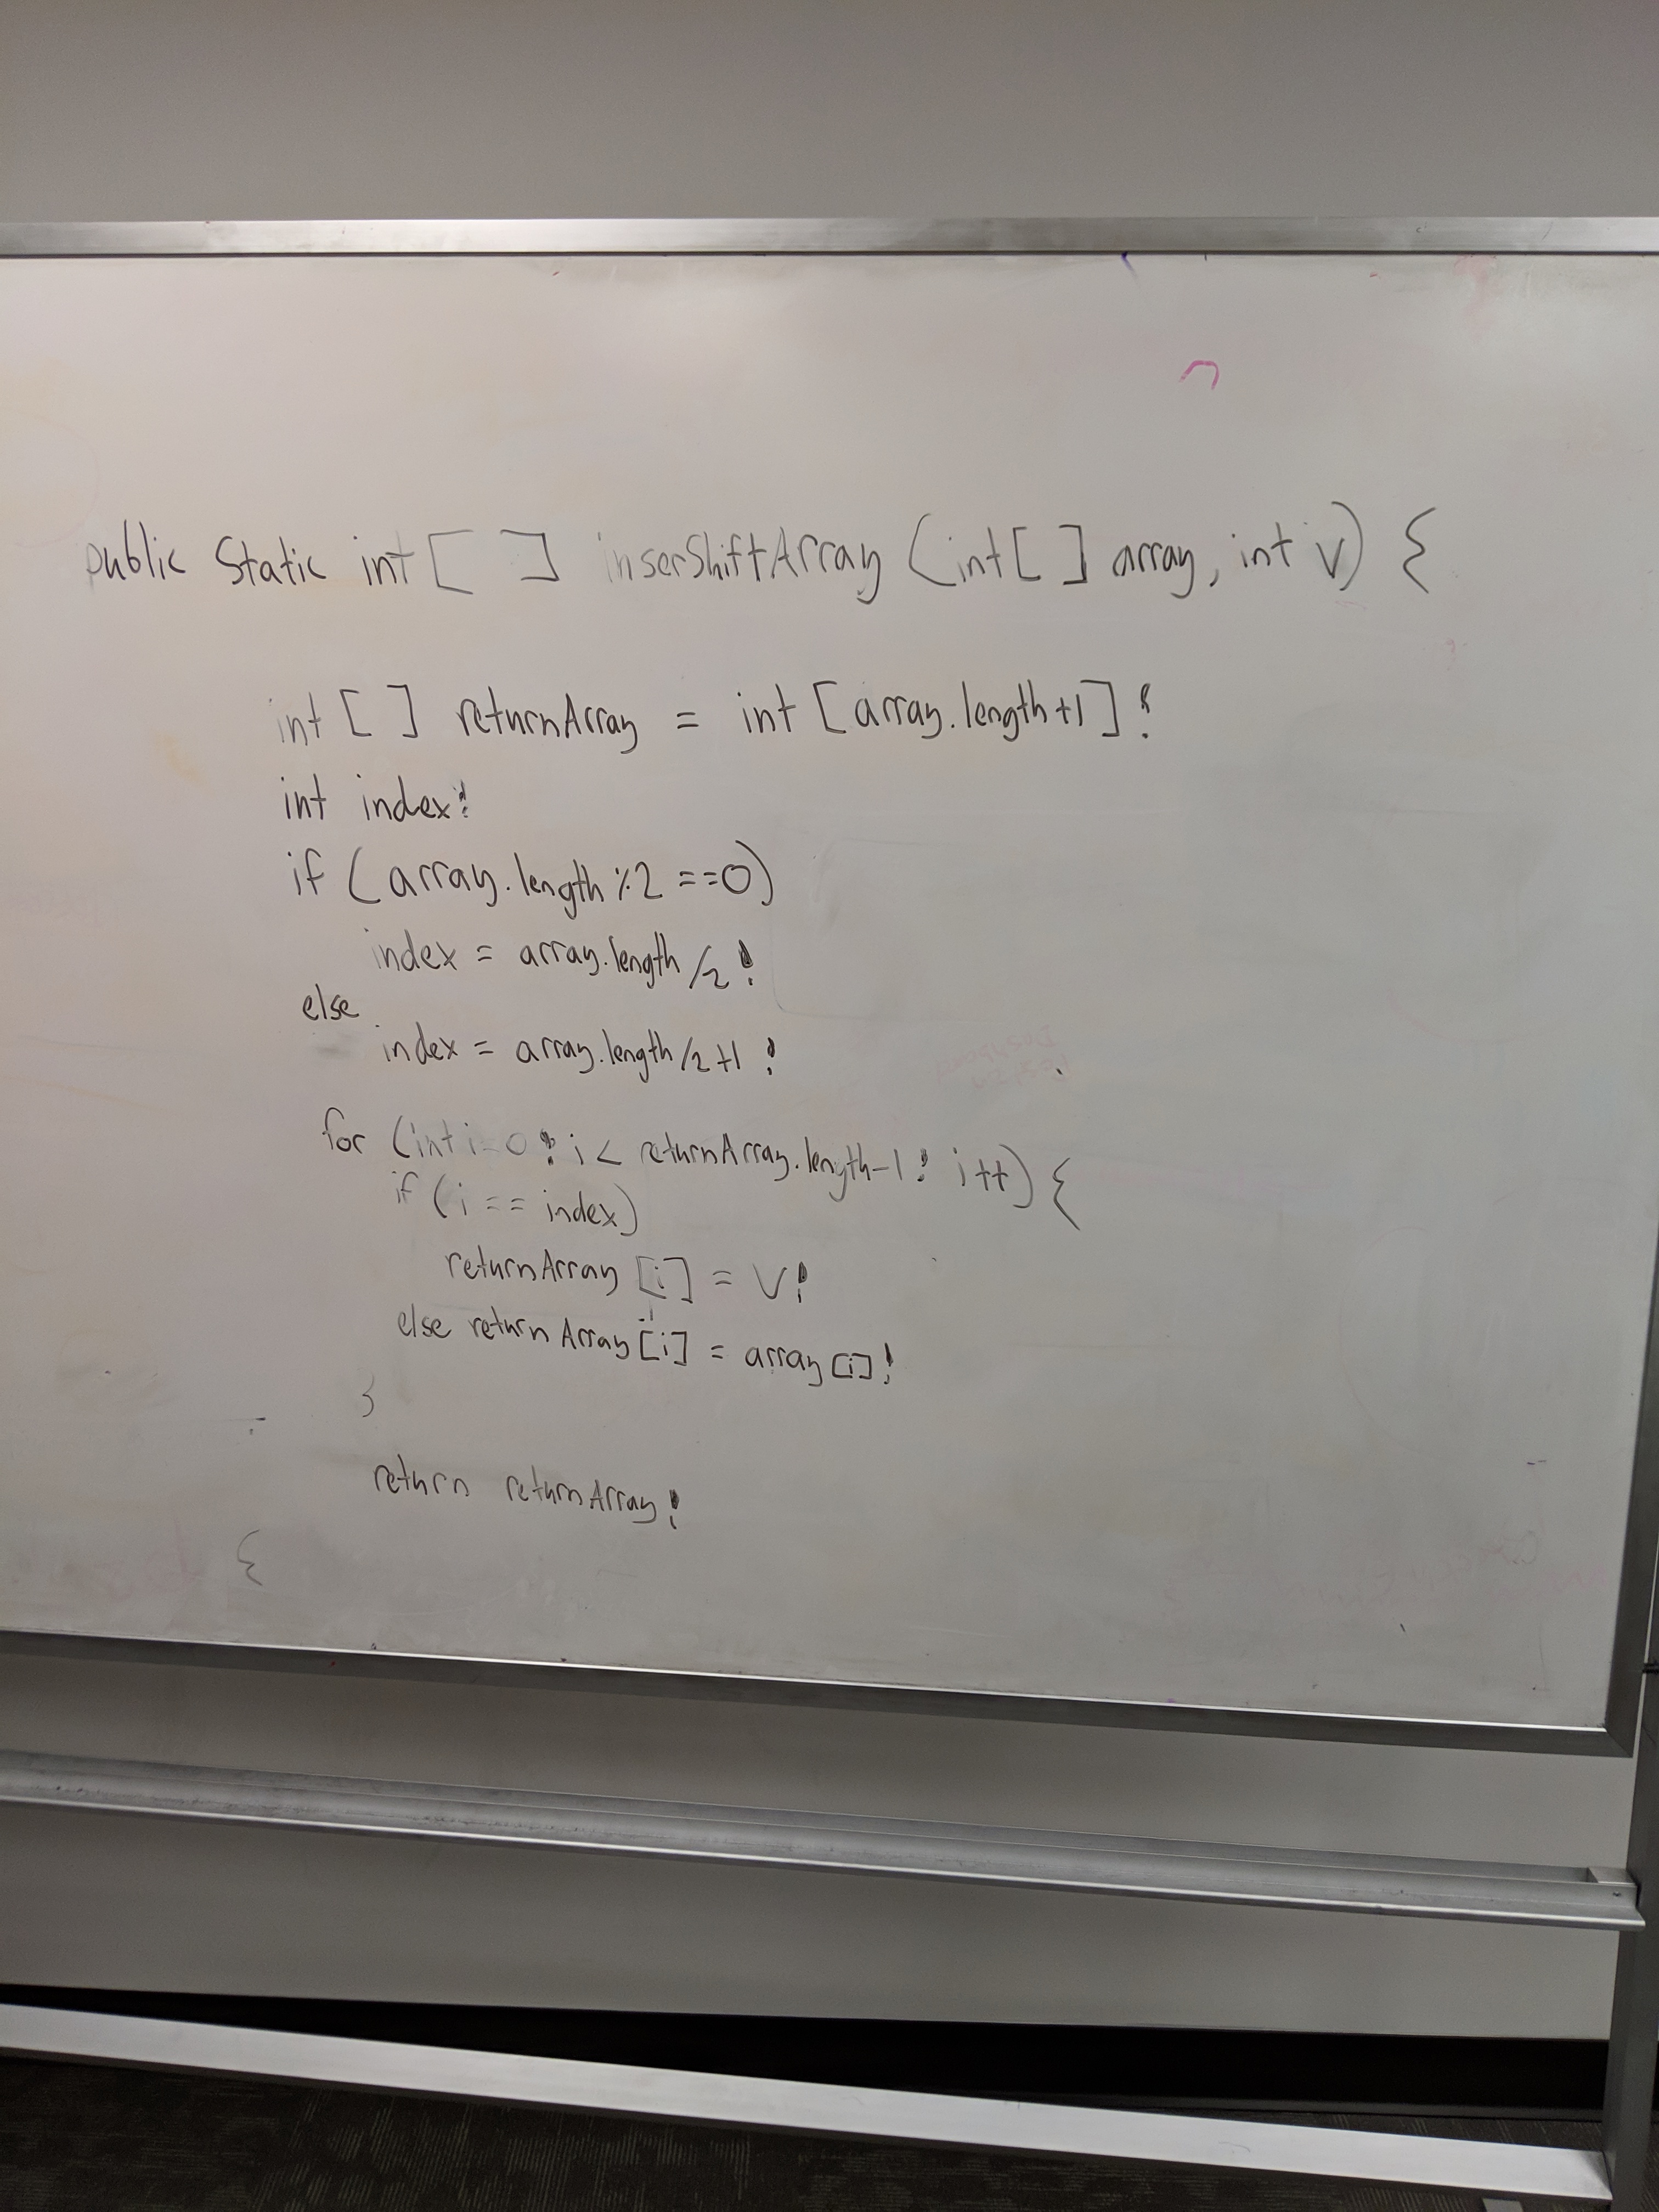 public static int [ ] inserShiftArray (int [ ] array, int v) {
int [ ] returnArray = int [array.length+1];
int index;
if (array.length%2 ==0)
index = array.length/2;
else
index = array.length/2+1;
for (int i=0; i < returnArray.length-1; i++) {
if (i == index)
returnArray [i] = v;
else returnArray[i] = array[i];
}
return returnArray;
{